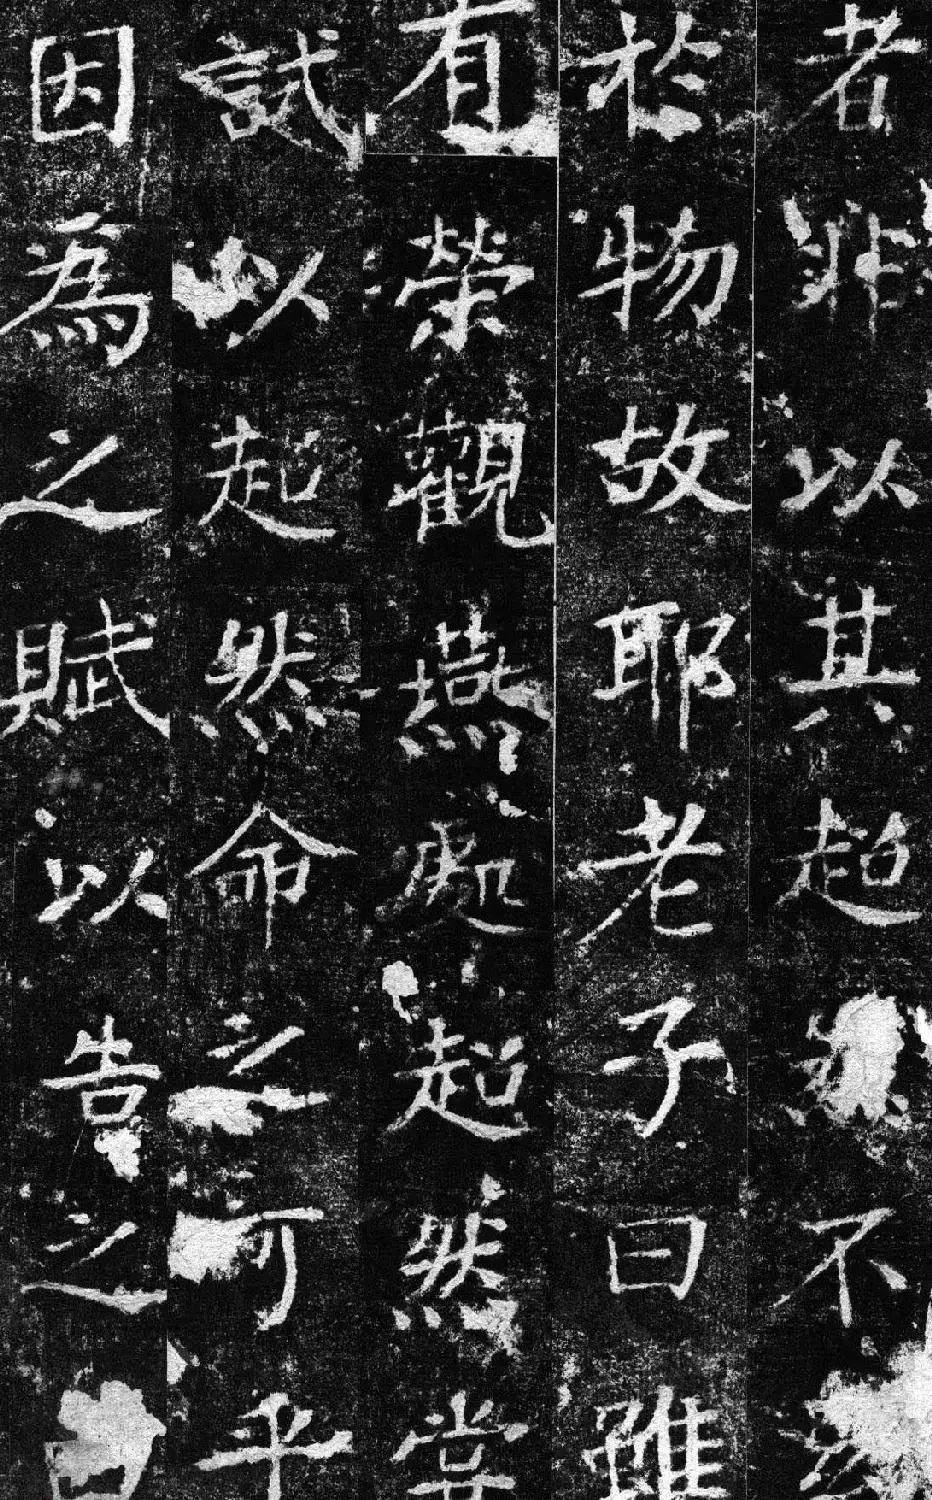 者非以其超然不
於物故耶老子曰雖
有榮觀燕處超然嘗
試以超然命之可乎
因為之賦以告之曰